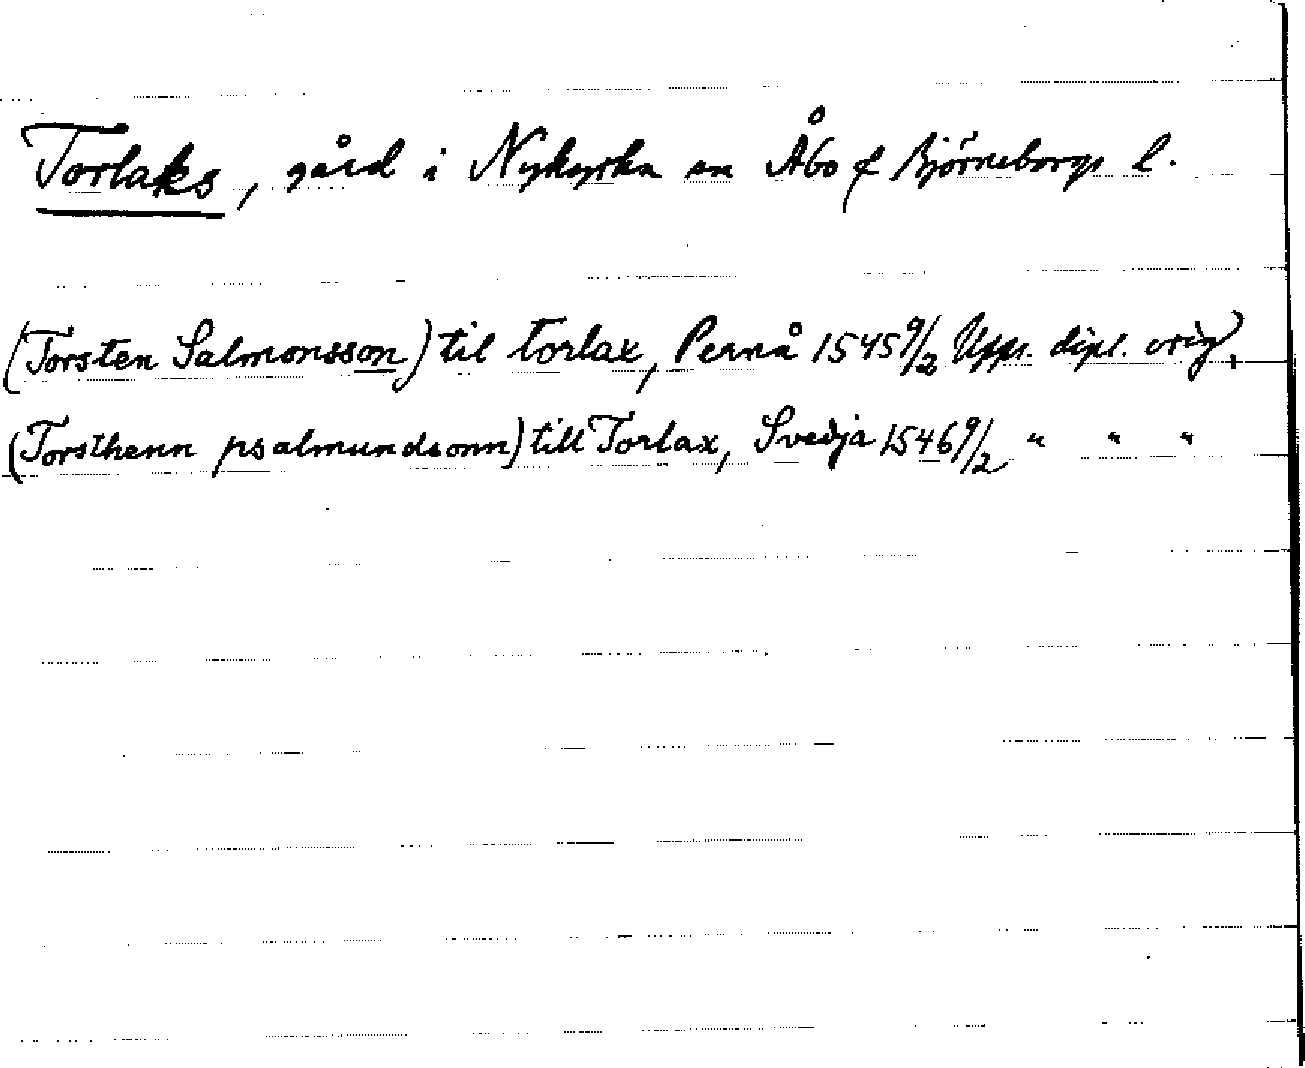 Torlaks, gård i Nykyrka sn Åbo o Björneborgs l.
(Torsten Salmonsson) til torlax, Pernå 1545 9/2 Upps. dipl. orig.
(Torsthenn psalmundsonn) till Torlax, Svedja 1546 9/2 " " "